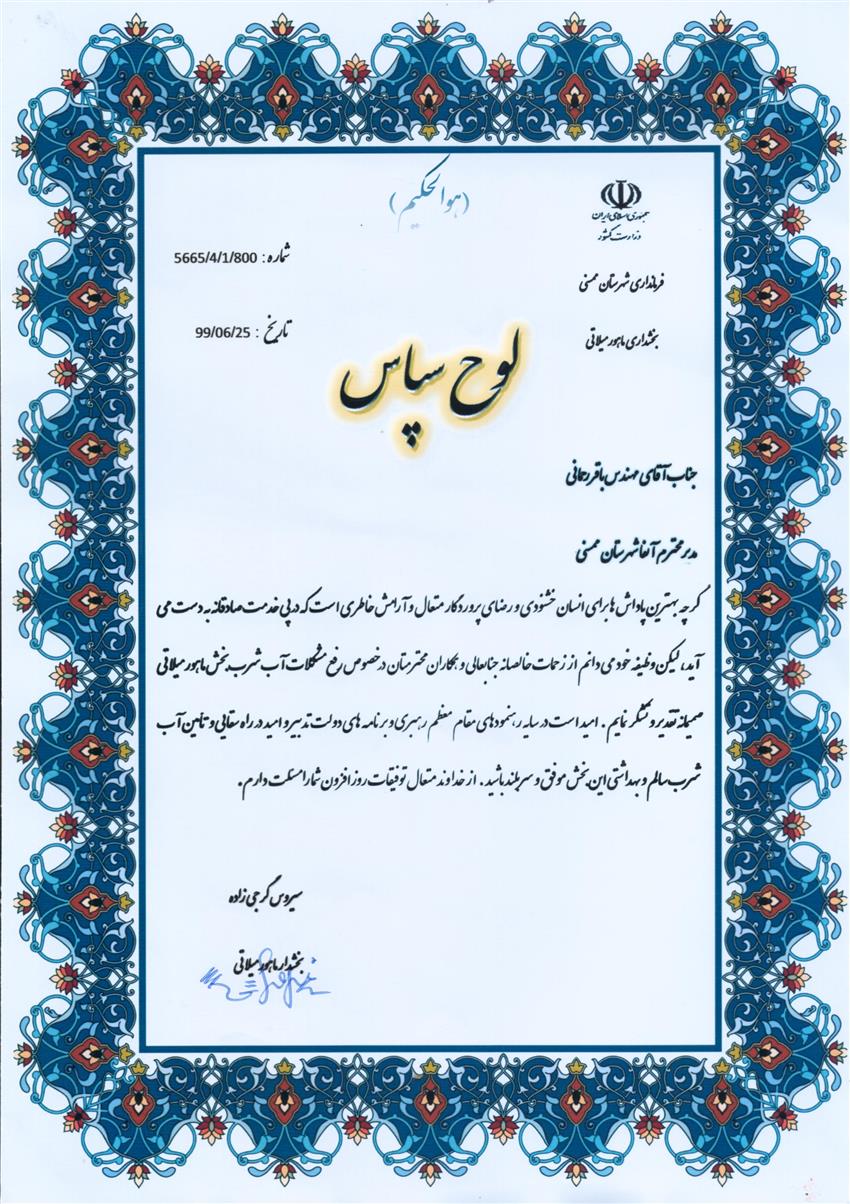 (هوالحکیم)
جمهوری اسلامی ایران
وزارت کشور
فرمانداری شهرستان ممسنی
بخشداری ماهور میلاتی
شماره : 5665/4/1/800
تاریخ : 99/06/25
لوح سپاس
جناب آقای مهندس باقر رحمانی
مدیر محترم آبفا شهرستان ممسنی
گرچه بهترین پاداش ها برای انسان خشنودی و رضای پروردگار متعال و آرامش خاطری است که در پی خدمت صادقانه به دست می
آید، لیکن وظیفه خود می دانم از زحمات خالصانه جنابعالی و همکاران محترمتان در خصوص رفع مشکلات آب شرب بخش ماهور میلاتی
صمیمانه تقدیر و تشکر نمایم . امید است در سایه رهنمودهای مقام معظم رهبری و برنامه های دولت تدبیر و امید در راه سقایی و تأمین آب
شرب سالم و بهداشتی این بخش موفق و سربلند باشید . از خداوند متعال توفیقات روزافزون شما را مسئلت دارم .
سیروس گرجی زاده
بخشدار ماهور میلاتی